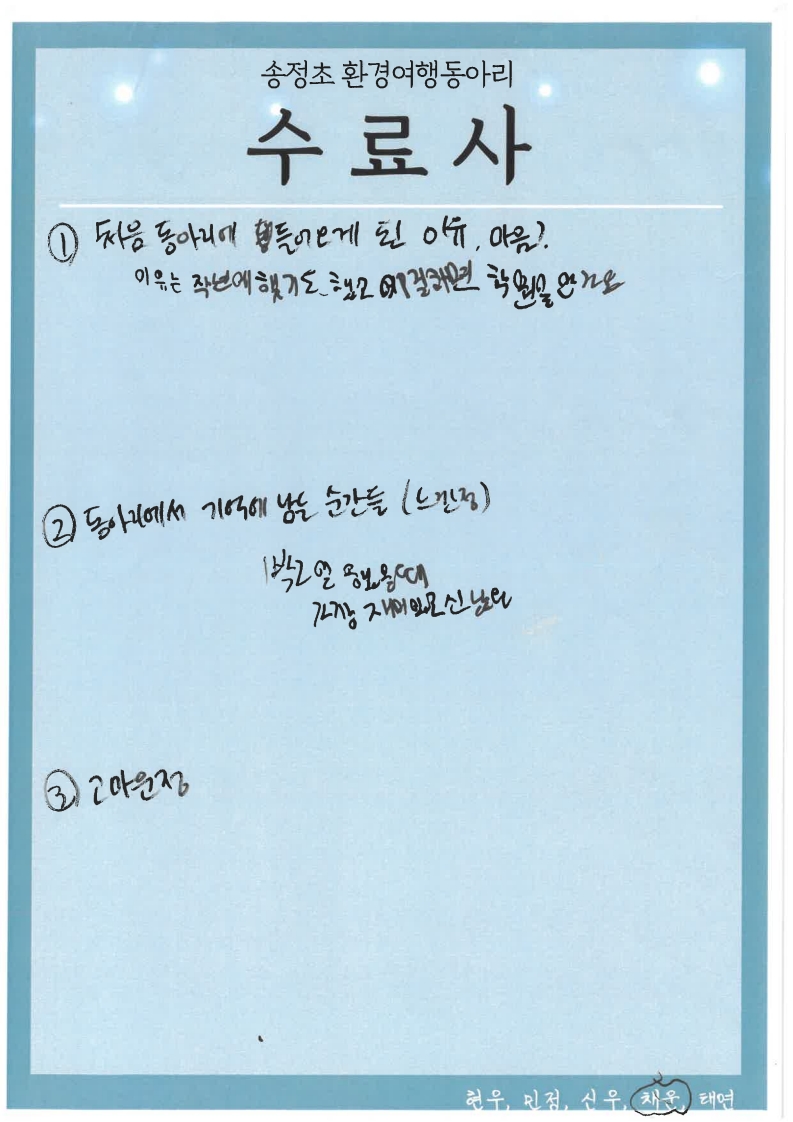 송정초 환경여행동아리
수료사
① 처음 동아리에 들어오게 된 이유, 마음?
이유는 작년에 했기도 했고 이걸하면 학원을 안가요
② 동아리에서 기억에 남는 순간들 (느낀점)
1박2일 캠프 때
가장 재미있고 신났다
③ 고마운점
현우, 민점, 신우, 채운, 태연